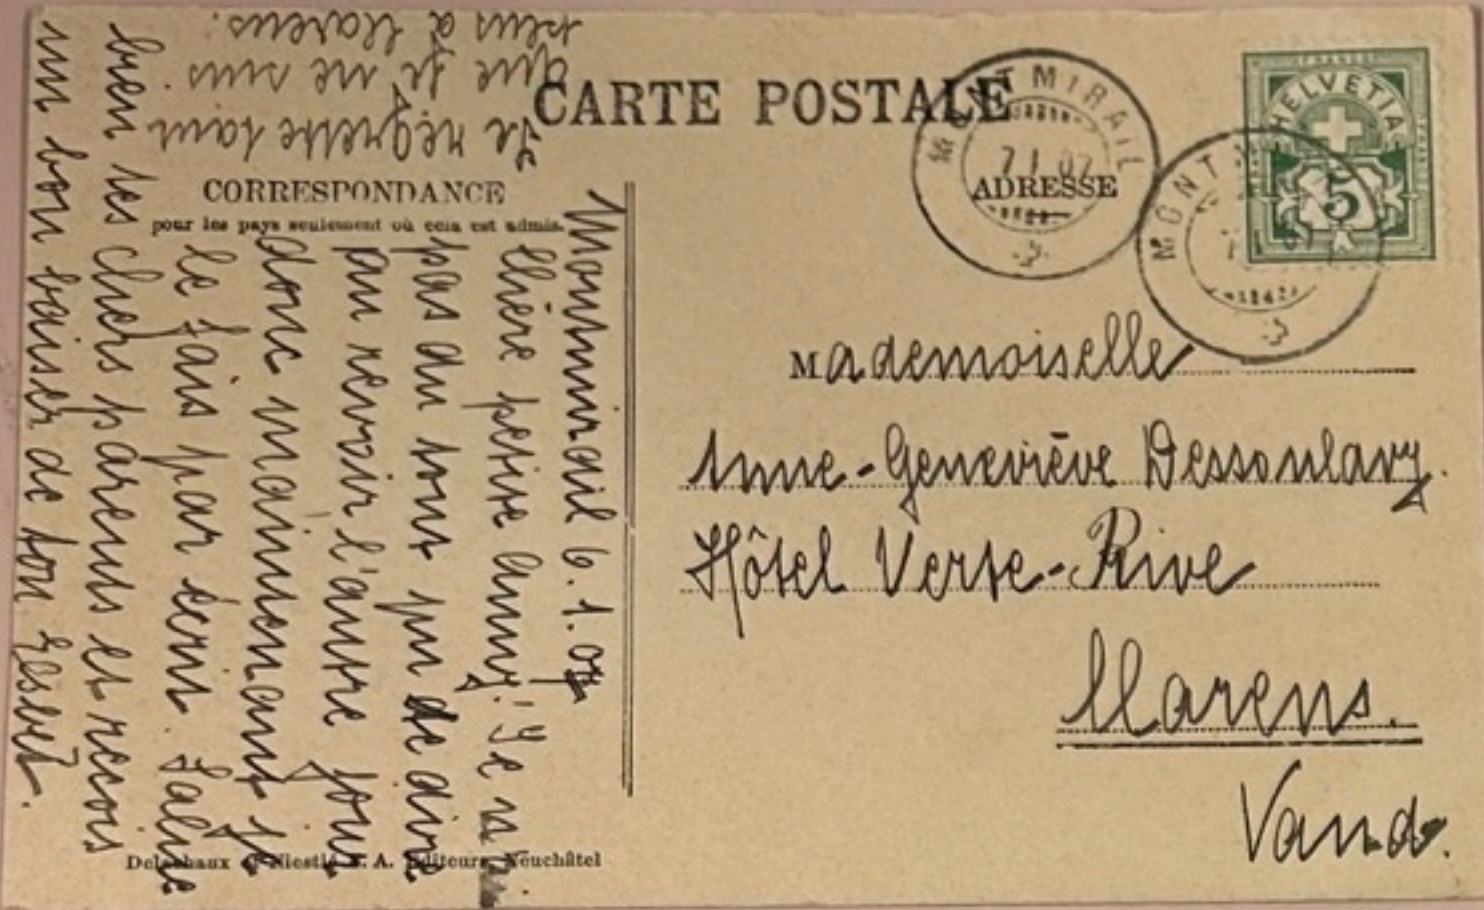 CARTE POSTALE
CORRESPONDANCE
pour les pays seulement où cela est admis.
ADRESSE
MONTMIRAIL
7.I.07
HELVETIA
5
MONTMIRAIL
Mademoiselle
Anne-Geneviève Dessoulavy.
Hôtel Verte-Rive
Clarens.
Vaud.
Montmirail 6.1.07
Chère petite Anny! Je n'ai
pas du tout pu te dire
au revoir l'autre jour
donc maintenant je
le fais par écrit. Salue
bien tes chers parents et reçois
un bon baiser de ton
Je regrette tant
que je ne suis
plus à Clarens.
Delachaux & Niestlé S. A. Editeurs, Neuchâtel